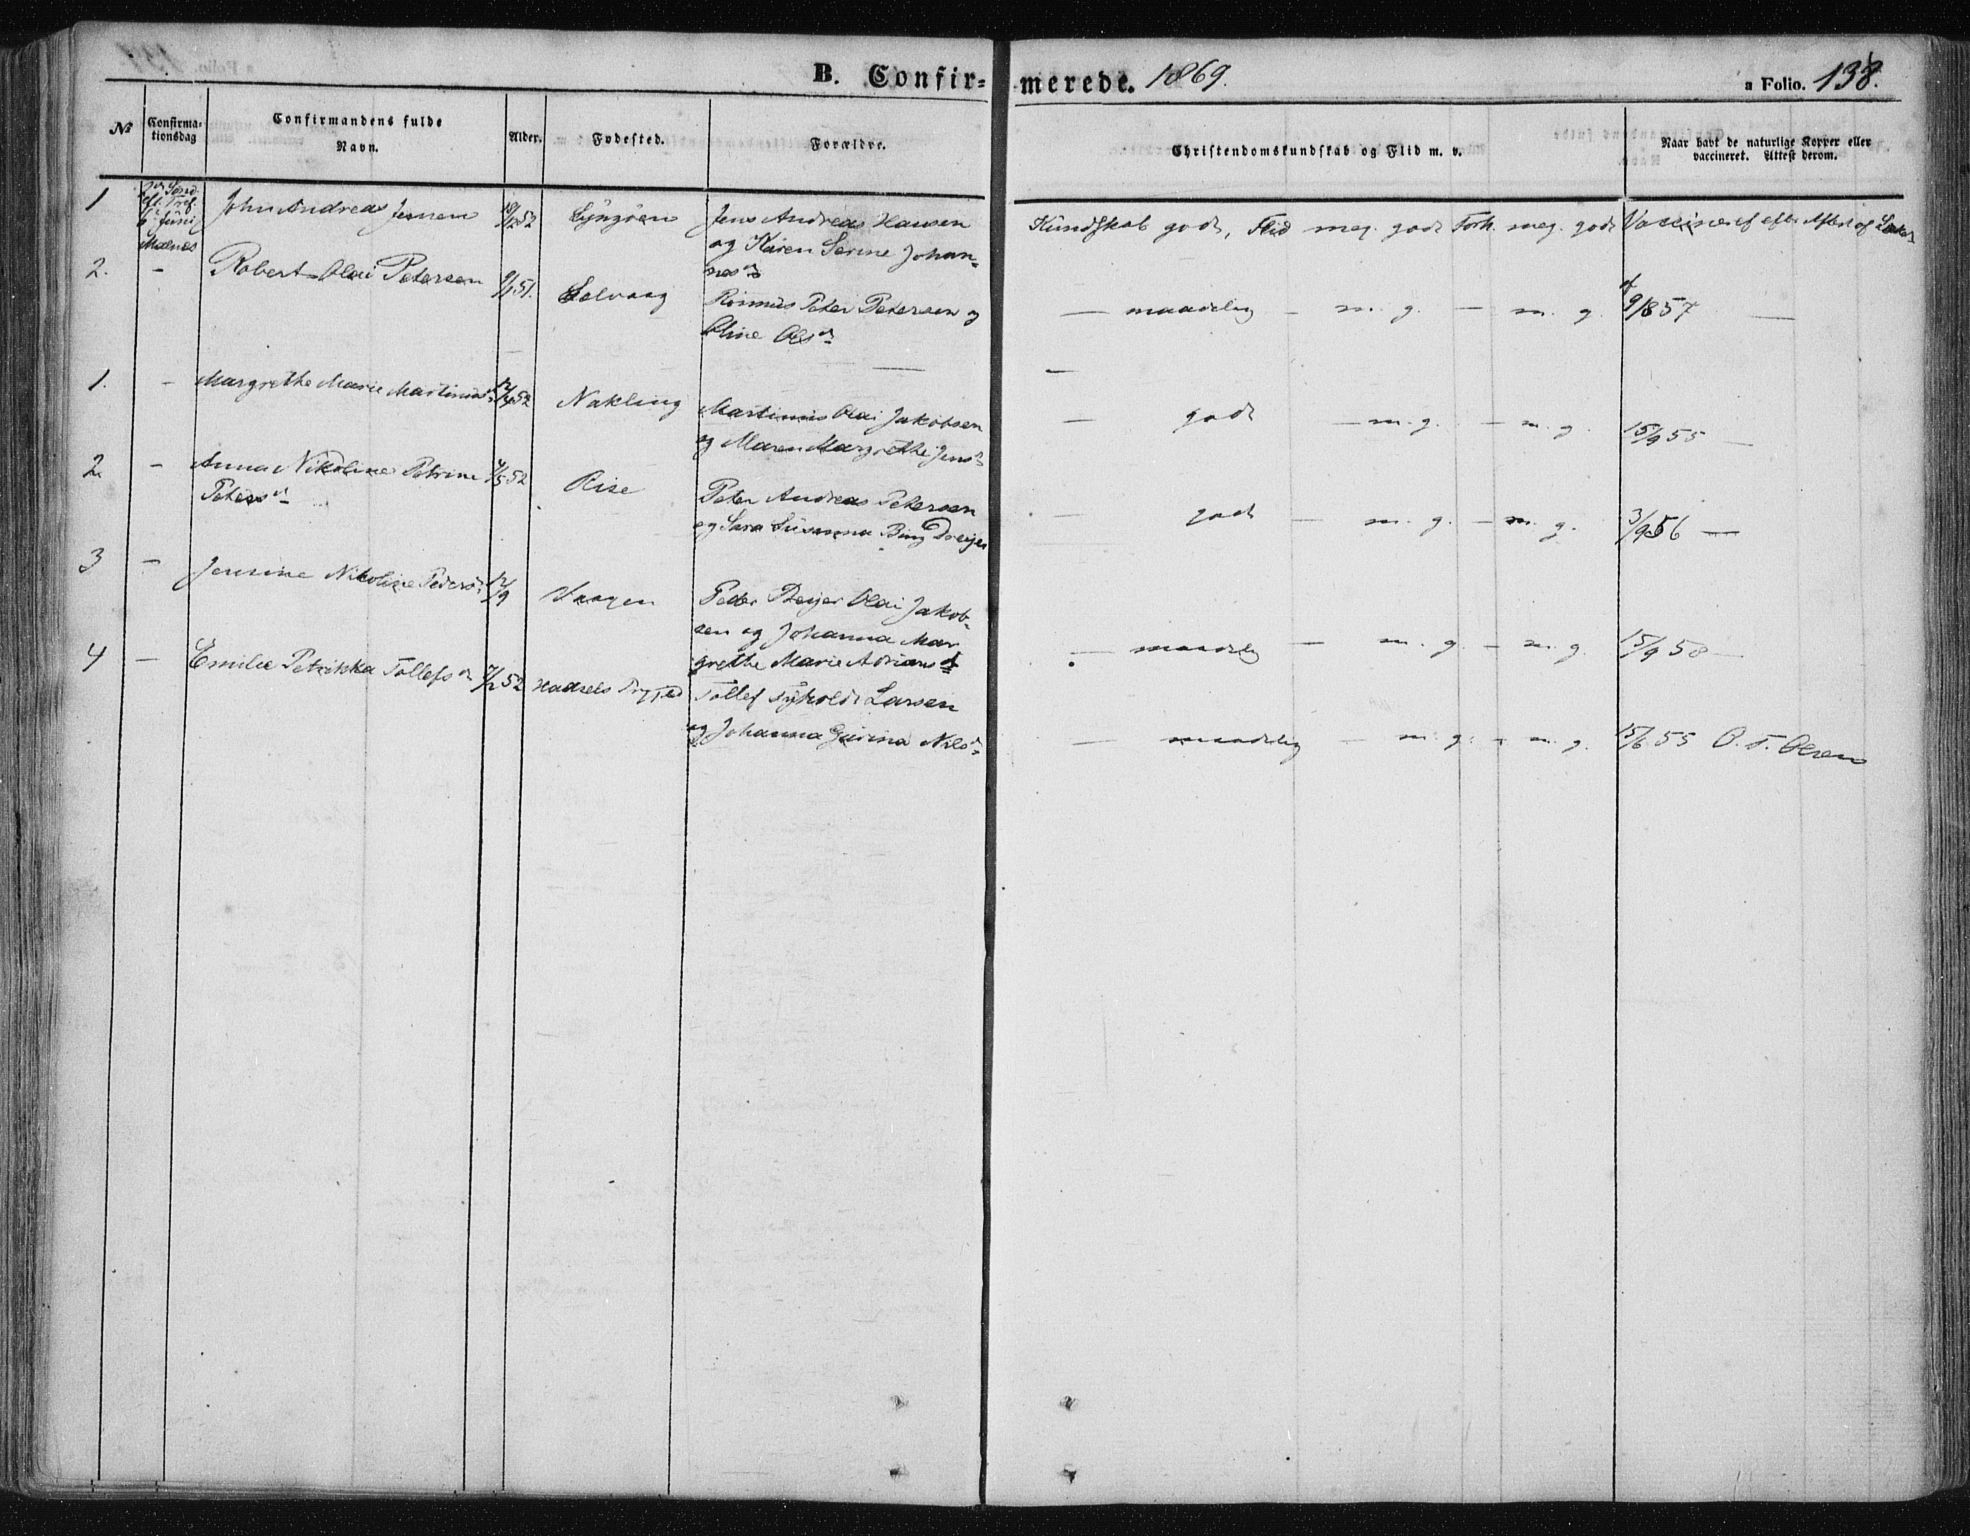 B. Confirmerede. 1869.
a Folio. 138.
No
Confirmationsdag
Confirmandens fulde
Navn.
Alder.
Fødested.
Forældre.
Christendomskundskab og Flid m. v.
Naar havt de naturlige Kopper eller
vaccineret. Attest derom.
1
6 Juni
John Andreas Jensen
52
Jens Andreas Hansen
og Karen Serine Johan-
nesd
Kundskab godt, Flid meg. godt Forh. meg. godt
2. -
Robert Olai Petersen
51.
Selvaag
Peter Petersen og
Oline Olsd
- maadelig - m. g. - m. g.
9/8 57 -
1. -
Margrethe Marie Martinusd
52
Nakling
Martinus Olai Jakobsen
og Maren Margrethe Jensd
- godt - m. g. - m. g.
15/9 55 -
2 -
Anna Nikoline Petrine
Petersd
4/5 52
Rise
Peter Andreas Petersen
og Sara Susanna Bing Dreyer
- godt - m. g. - m. g.
3/9 56 -
3 -
Jensine Nikoline Pedersd
12/9
Vaagen
Peder Olai Jakob-
sen og Johanna Mar
grethe Marie Adriansd
- maadelig - m. g. - m. g.
15/9 58 -
4 -
Emilie Petrikka Tollefsd
7/2 52
Hadsels
Tollef Larsen
og Johanna Gurina Nilsd
- maadelig - m. g. - m. g.
15/6 55 O. T. Olsen